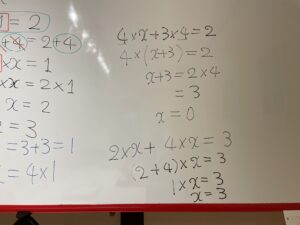 1 = 2
+4 = 2+4
x = 1
x = 2 × 1
x = 2
= 3
= 3+3 = 1
= 4×1
4 × x + 3 × 4 = 2
4 × (x+3) = 2
x+3 = 2 × 4
= 3
x = 0
2 × x + 4 × x = 3
(2+4) × x = 3
1 × x = 3
x = 3